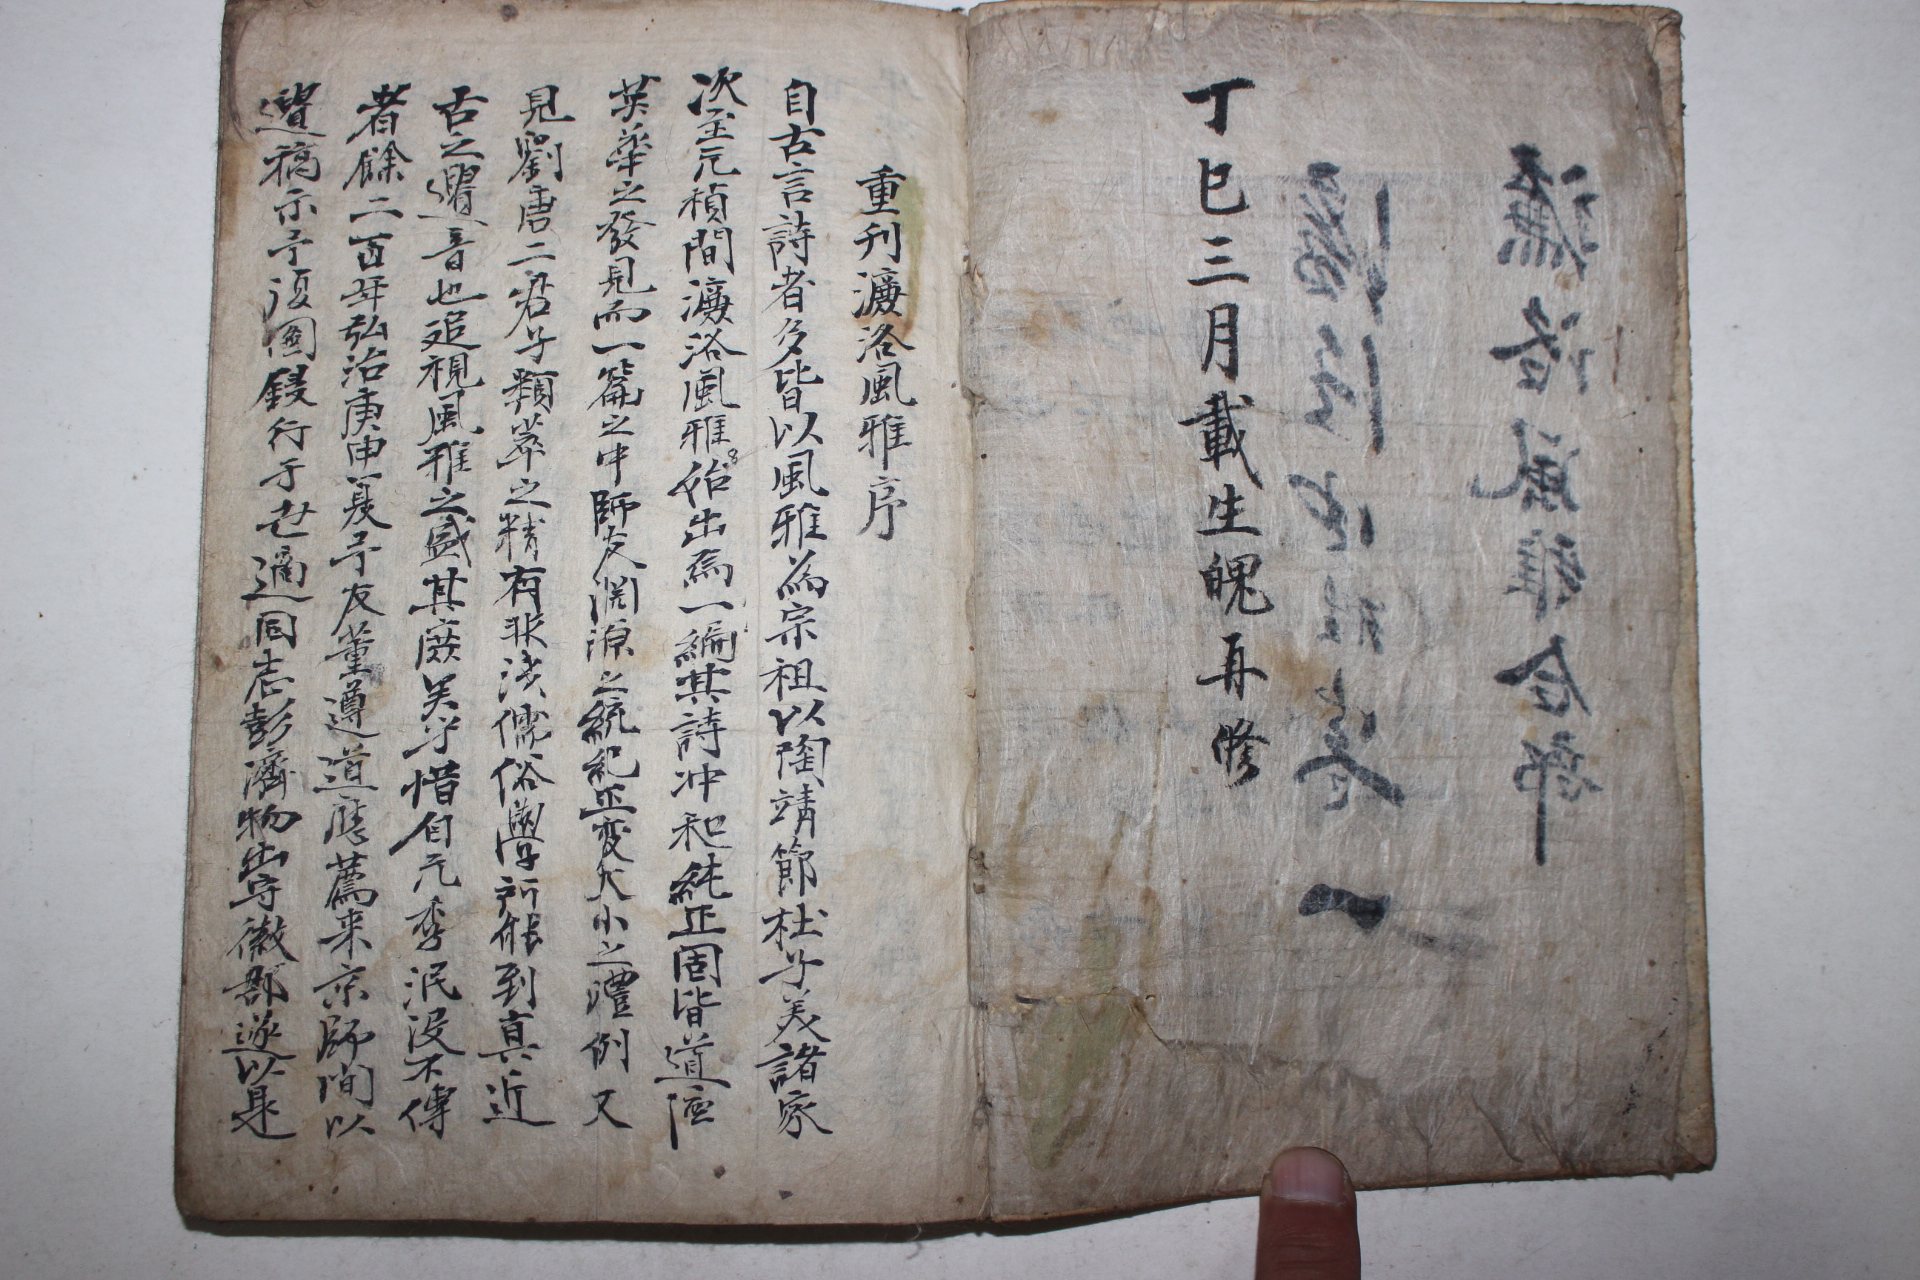 丁巳三月載生魄再修
濂洛風雅合部
一
重刊濂洛風雅序
自古言詩者多皆以風雅為宗祖以陶靖節杜子美諸家
次至元楨間濂洛風雅始出為一編其詩冲和純正固皆道
英華之發見而一篇之中師友淵源之統紀正變大小之體例又
見劉唐二君子類萃之精有非淺儒俗學所能到真近
古之遺音也追視風雅之盛其庶矣乎惜自元季泯没不傳
者餘二百年弘治庚申夏予友董遵道應薦来京師間以
遺稿示予復圖鋟行于世適同志彭濟物出守徽郡遂以是